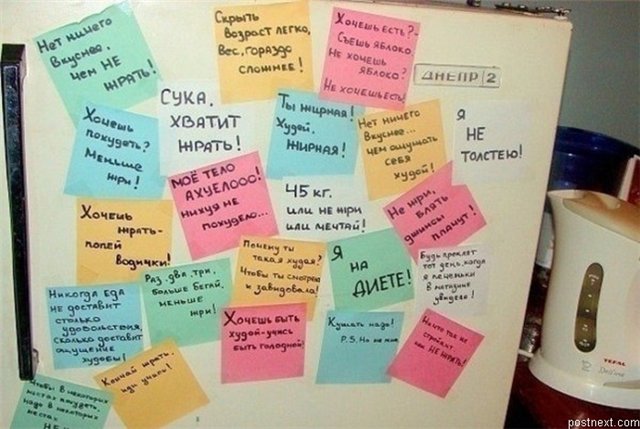 Нет ничего
вкуснее,
чем НЕ
ЖРАТЬ!
Скрыть
возраст легко,
Вес, гораздо
сложнее!
Хочешь есть?-
Съешь яблоко
Не хочешь
яблоко?
Не хочешь есть!
ДНЕПР 2
СУКА,
ХВАТИТ
ЖРАТЬ!
Ты жирная!
Худей,
ЖИРНАЯ!
Нет ничего
вкуснее...
чем ощущать
себя
худой!
Я
НЕ
ТОЛСТЕЮ!
Хочешь
похудеть?
Меньше
жри!
МОЁ ТЕЛО
АХУЕЛООО!
НИХУЯ НЕ
ПОХУДЕЛО...
45 кг.
ИЛИ НЕ ЖРИ
ИЛИ МЕЧТАЙ!
Не жри,
БЛЯТЬ
джинсы
плачут!
Хочешь
жрать-
попей
водички!
Почему ты
такая худая?
Чтобы ты смотрела
и завидовала!
Я
НА
ДИЕТЕ!
Будь проклят
тот день, когда
я печеньки
в магазине
увидела!
Никогда еда
не доставит
столько
удовольствия,
сколько доставит
ощущение
худобы!
Раз, два, три,
больше бегай,
меньше
жри!
Хочешь быть
худой-учись
быть голодной!
Кушать надо!
P.S. Но не мне
Ничто так не
стройнит
как НЕ ЖРАТЬ!
Кончай жрать,
иди учись!
Чтобы в некоторых
местах похудеть,
надо в некоторых
местах
НЕ
TEFAL
postnext.com